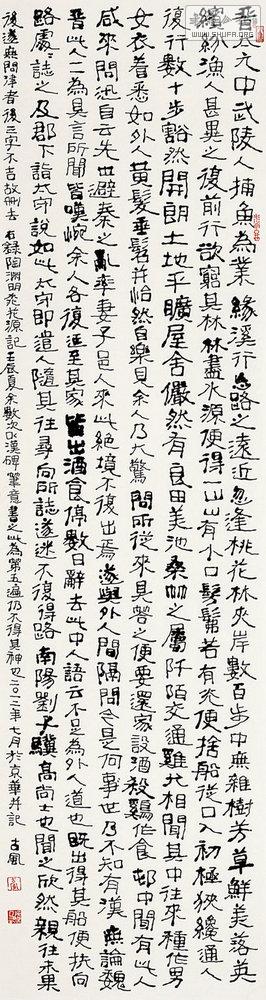 晋太元中武陵人捕鱼為業緣溪行忘路之遠近忽逢桃花林夹岸數百步中無雜樹芳草鮮美落英
繽紛漁人甚異之復前行欲窮其林林盡水源便得一山山有小口髣髴若有光便捨船從口入初極狹纔通人
復行數十步豁然開朗土地平曠屋舍儼然有良田美池桑竹之屬阡陌交通雞犬相聞其中往來種作男
女衣着悉如外人黄髮垂髫并怡然自樂見余人乃大驚問所從來具答之便要還家設酒殺鷄作食邨中聞有此人
咸來問迅自云先世避秦之亂率妻子邑人來此絶境不復出焉遂與外人間隔問今是何世乃不知有漢無論魏
晋此人一一為具言所聞皆嘆惋余人各復延至其家皆出酒食停數日辭去此中人語云不足為外人道也既出得其船便扶向
路處處誌之及郡下詣太守說如此太守即遣人隨其往尋向所誌遂迷不復得路南陽劉子驥高尚士也聞之欣然親往未果
後遂無問津者後三字不吉故刪去
SHUFA.ORG